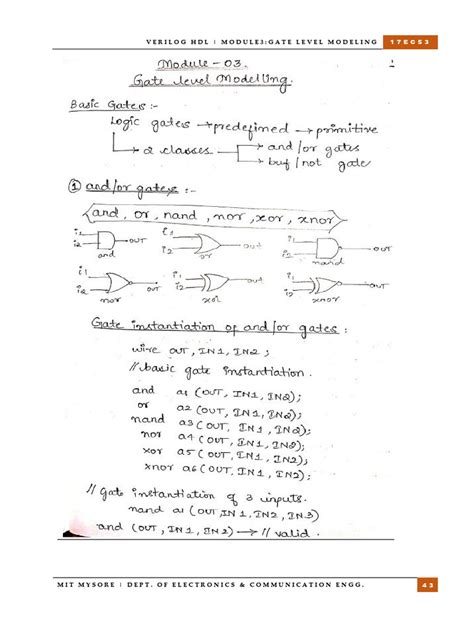 VERILOG HDL | MODULE3:GATE LEVEL MODELING 17EC53
1
Module - 03.
Gate level Modelling.
Basic Gates :-
Logic gates → predefined → primitive
→ 2 classes → and/or gates
→ buf/not gate
① and/or gates :-
and, or, nand, nor, xor, xnor
i1 i2 OUT and
i1 i2 OUT or
i1 i2 OUT nand
i1 i2 OUT nor
i1 i2 OUT xor
i1 i2 OUT
Gate instantiation of and/or gates :
wire OUT, IN1, IN2 ;
// basic gate instantiation.
and a1 (OUT, IN1, IN2);
or a2 (OUT, IN1, IN2);
nand a3 (OUT, IN1, IN2);
nor a4 (OUT, IN1, IN2);
xor a5 (OUT, IN1, IN2);
xnor a6 (OUT, IN1, IN2);
// Gate instantiation of 3 inputs.
nand a1 (OUT, IN1, IN2, IN3)
and (OUT, IN1, IN2) → // valid.
MIT MYSORE | DEPT. OF ELECTRONICS & COMMUNICATION ENGG. 43